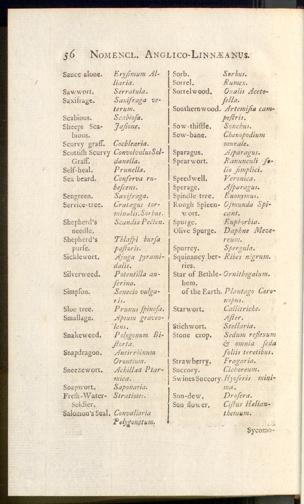 56 NOMENCL. ANGLICO-LINNÆANUS.
Sauce alone. Eryſimum Al-
liaria.
Sawwort. Serratula.
Saxifrage. Saxifraga ve-
terum.
Scabious. Scabioſa.
Sheeps Sca- Jaſione.
bious.
Scurvy graſſ. Cochlearia.
Scottiſh Scurvy Convolvulus Sol-
Graſſ. danella.
Self-heal. Prunella.
Sea beard. Conferva ru-
beſcens.
Sengreen. Saxifraga.
Service-tree. Crataegus tor-
minalis. Sorbus.
Shepherd's Scandix Pecten.
needle.
Shepherd's Thlaſpi burſa
purſe. paſtoris.
Sicklewort. Ajuga pyrami-
dalis.
Silverweed. Potentilla an-
ſerina.
Simpſon. Senecio vulga-
ris.
Sloe tree. Prunus ſpinoſa.
Smallage. Apium graveo-
lens.
Snakeweed. Polygonum Bi-
ſtorta.
Snapdragon. Antirrhinum
Orontium.
Sneezewort. Achillea Ptar-
mica.
Soapwort. Saponaria.
Freſh-Water- Stratiotes.
Soldier.
Salomon's Seal. Convallaria
Polygonatum.
Sorb. Sorbus.
Sorrel. Rumex.
Sorrelwood. Oxalis Aceto-
ſella.
Southernwood. Artemiſia cam-
peſtris.
Sow-thiſtle. Sonchus.
Sow-bane. Chenopodium
Sparagus. Aſparagus.
Spearwort. Ranunculi fo-
lio ſimplici.
Speedwell. Veronica.
Sperage. Aſparagus.
Spindle-tree. Euonymus.
Rough Spleen- Oſmunda Spi-
wort. cant.
Spurge. Euphorbia.
Olive Spurge. Daphne Meze-
reum.
Spurrey. Spergula.
Squinancy ber- Ribes nigrum.
ries.
Star of Bethle- Ornithogalum.
hem.
of the Earth. Plantago Coro-
nopus.
Starwort. Callitriche.
Aſter.
Stichwort. Stellaria.
Stone crop. Sedum rofeteum
& omnia ſeda
foliis teretibus.
Strawberry. Fragaria.
Succory. Cichoreum.
Swines Succory. Hyoſeris mini-
ma.
Sun-dew. Droſera.
Sun flower. Ciſtus Helian-
themum.
Sycomo-